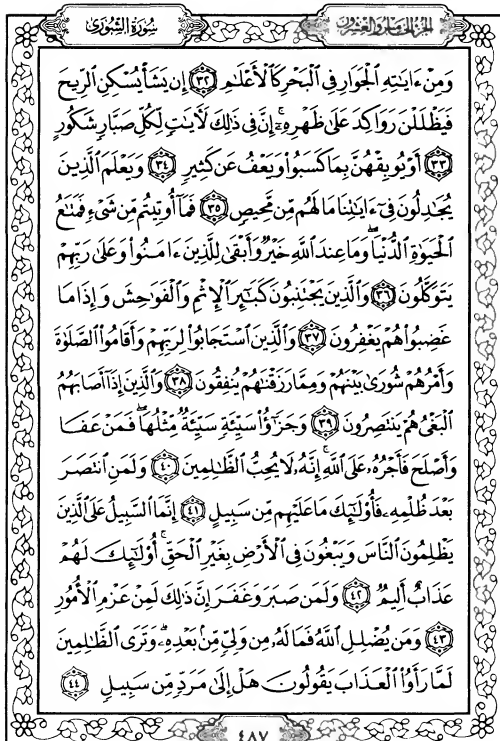 الجزء الخامس والعشرون سورة الشورى
وَمِنْ ءَايَٰتِهِ ٱلْجَوَارِ فِي ٱلْبَحْرِ كَٱلْأَعْلَٰمِ ۝٣٢ إِن يَشَأْ يُسْكِنِ ٱلرِّيحَ
فَيَظْلَلْنَ رَوَاكِدَ عَلَىٰ ظَهْرِهِۦٓ ۚ إِنَّ فِي ذَٰلِكَ لَأٓيَٰتٍ لِّكُلِّ صَبَّارٍ شَكُورٍ
۝٣٣ أَوْ يُوبِقْهُنَّ بِمَا كَسَبُوا۟ وَيَعْفُ عَن كَثِيرٍ ۝٣٤ وَيَعْلَمَ ٱلَّذِينَ
يُجَٰدِلُونَ فِيٓ ءَايَٰتِنَا مَا لَهُم مِّن مَّحِيصٍ ۝٣٥ فَمَآ أُوتِيتُم مِّن شَيْءٍ فَمَتَٰعُ
ٱلْحَيَوٰةِ ٱلدُّنْيَا ۖ وَمَا عِندَ ٱللَّهِ خَيْرٌ وَأَبْقَىٰ لِلَّذِينَ ءَامَنُوا۟ وَعَلَىٰ رَبِّهِمْ
يَتَوَكَّلُونَ ۝٣٦ وَٱلَّذِينَ يَجْتَنِبُونَ كَبَٰٓئِرَ ٱلْإِثْمِ وَٱلْفَوَٰحِشَ وَإِذَا مَا
غَضِبُوا۟ هُمْ يَغْفِرُونَ ۝٣٧ وَٱلَّذِينَ ٱسْتَجَابُوا۟ لِرَبِّهِمْ وَأَقَامُوا۟ ٱلصَّلَوٰةَ
وَأَمْرُهُمْ شُورَىٰ بَيْنَهُمْ وَمِمَّا رَزَقْنَٰهُمْ يُنفِقُونَ ۝٣٨ وَٱلَّذِينَ إِذَآ أَصَابَهُمُ
ٱلْبَغْيُ هُمْ يَنتَصِرُونَ ۝٣٩ وَجَزَٰٓؤُا۟ سَيِّئَةٍ سَيِّئَةٌ مِّثْلُهَا ۖ فَمَنْ عَفَا
وَأَصْلَحَ فَأَجْرُهُۥ عَلَى ٱللَّهِ ۚ إِنَّهُۥ لَا يُحِبُّ ٱلظَّٰلِمِينَ ۝٤٠ وَلَمَنِ ٱنتَصَرَ
بَعْدَ ظُلْمِهِۦ فَأُو۟لَٰٓئِكَ مَا عَلَيْهِم مِّن سَبِيلٍ ۝٤١ إِنَّمَا ٱلسَّبِيلُ عَلَى ٱلَّذِينَ
يَظْلِمُونَ ٱلنَّاسَ وَيَبْغُونَ فِي ٱلْأَرْضِ بِغَيْرِ ٱلْحَقِّ ۚ أُو۟لَٰٓئِكَ لَهُمْ
عَذَابٌ أَلِيمٌ ۝٤٢ وَلَمَن صَبَرَ وَغَفَرَ إِنَّ ذَٰلِكَ لَمِنْ عَزْمِ ٱلْأُمُورِ
۝٤٣ وَمَن يُضْلِلِ ٱللَّهُ فَمَا لَهُۥ مِن وَلِيٍّ مِّنۢ بَعْدِهِۦ ۗ وَتَرَى ٱلظَّٰلِمِينَ
لَمَّا رَأَوُا۟ ٱلْعَذَابَ يَقُولُونَ هَلْ إِلَىٰ مَرَدٍّ مِّن سَبِيلٍ ۝٤٤
٤٨٧